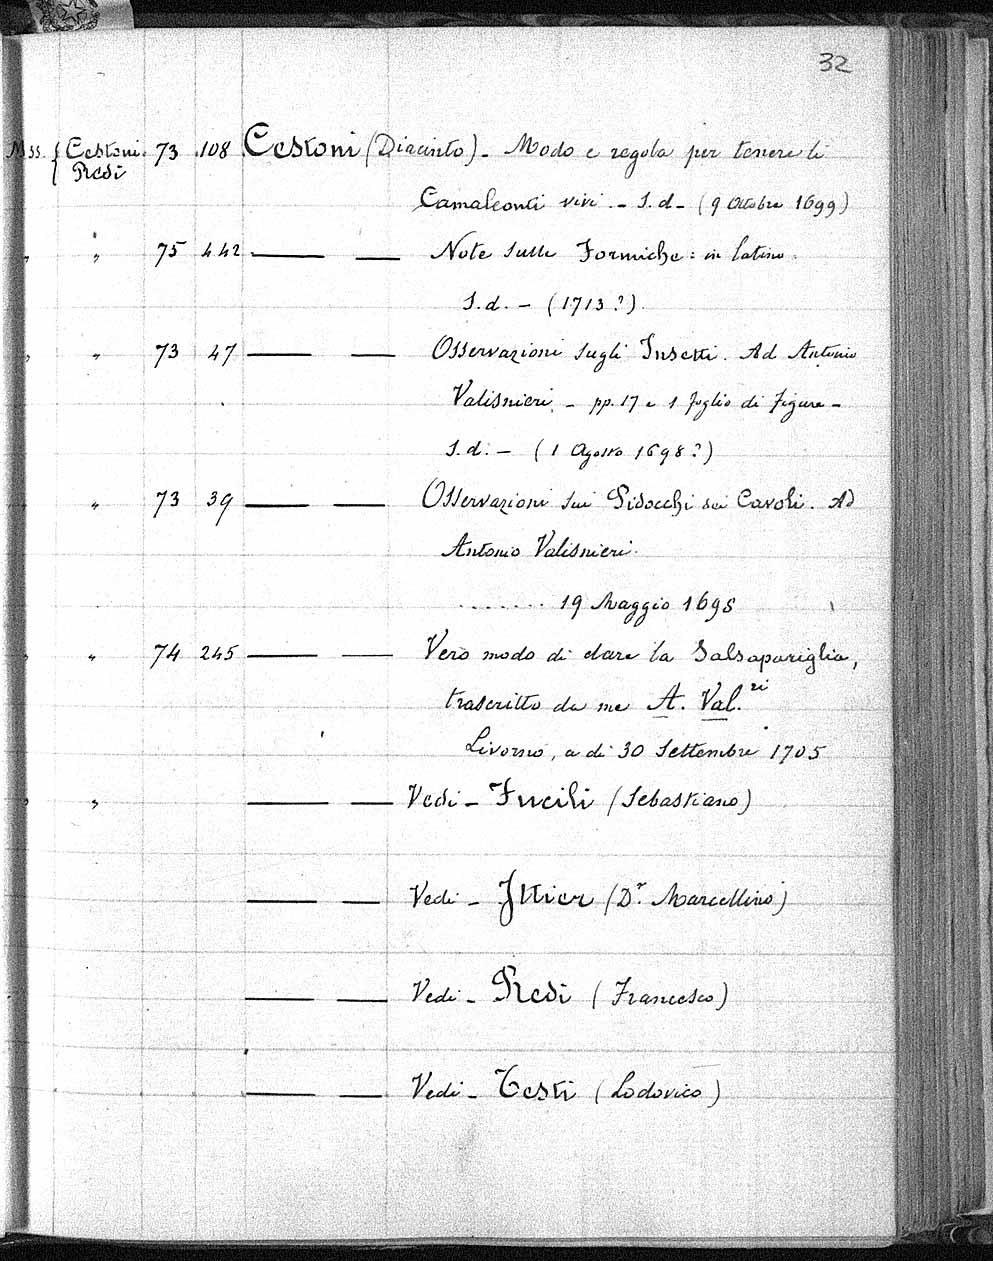 32
Mss. { Cestoni. 73 108 Cestoni (Diacinto) - Modo e regola per tenere li
Redi
Camaleonti vivi. - S. d. - (9 Ottobre 1699)
" " 75 442 —— —— Note sulle Formiche: in latino.
S. d. - (1713?)
" " 73 47 —— —— Osservazioni sugli Insetti. Ad Antonio
Valisnieri. - pp. 17 e 1 foglio di figure -
S. d. - (1 Agosto 1698?)
" " 73 39 —— —— Osservazioni sui Pidocchi dei Cavoli. Ad
Antonio Valisnieri.
........ 19 Maggio 1698
" " 74 245 —— —— Vero modo di dare la Salsapariglia,
trascritto da me A. Val.ri
Livorno, a di 30 Settembre 1705
" " —— —— Vedi - Fucili (Sebastiano)
—— —— Vedi - Ittier (Dr. Marcellino)
—— —— Vedi - Redi (Francesco)
—— —— Vedi - Testi (Lodovico)